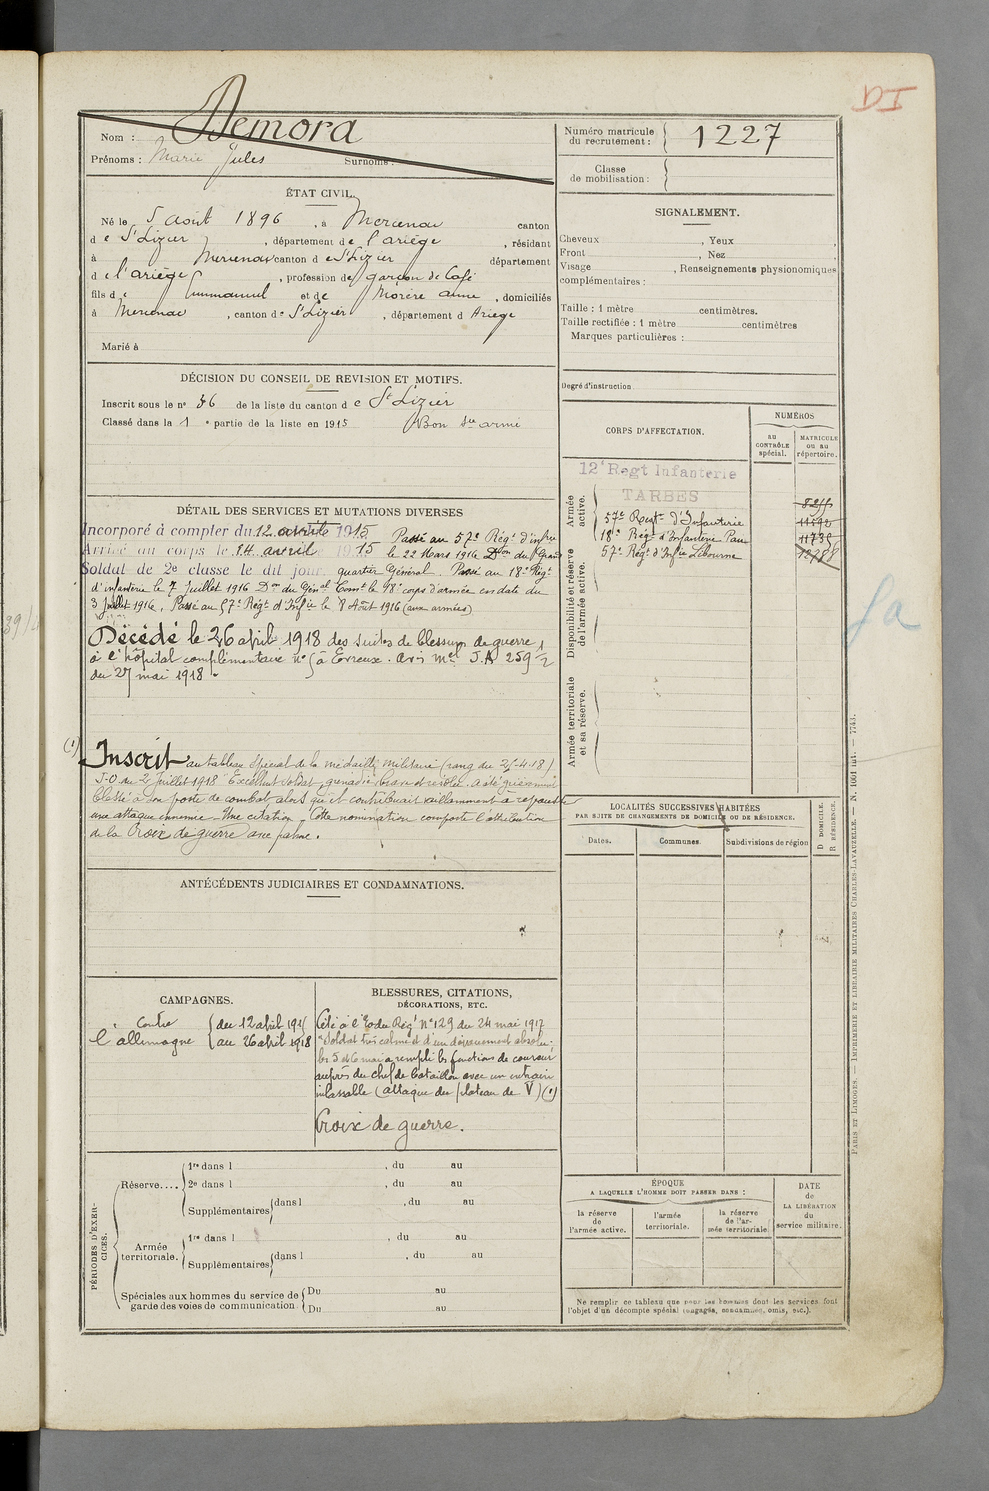 DI
Nom : Demora
Prénoms : Marie Jules Surnoms :
Numéro matricule du recrutement : 1227
Classe de mobilisation :
ÉTAT CIVIL.
Né le 5 août 1896 , à Mercenac canton
de St Lizier , département de l'ariège , résidant
à Mercenac canton de St Lizier département
de l'ariège , profession de garçon de Café
fils d'Emmanuel et de Morère anne , domiciliés
à Mercenac , canton de St Lizier , département d Ariège
Marié à
DÉCISION DU CONSEIL DE REVISION ET MOTIFS.
Inscrit sous le no 36 de la liste du canton de St Lizier
Classé dans la 1 e partie de la liste en 1915 Bon sce armé
DÉTAIL DES SERVICES ET MUTATIONS DIVERSES
Incorporé à compter du 12 avril 1915 Passé au 57e Régt d'infie
Arrivé au corps le 14 avril 1915 le 22 Mars 1916 Don du Grand
Soldat de 2e classe le dit jour. quartier Général. Passé au 18e Régt
d'infanterie le 7 Juillet 1916 Don du Génal Comt le 18e corps d'armée en date du
3 Juillet 1916, Passé au 57e Régt d'Infie le 8 Août 1916 (aux armées)
Décédé le 26 april 1918 des suites de blessures de guerre
à l'hôpital complémentaire no 5 à Evreux. avis mel J.A 259 1/2
du 27 mai 1918.
(1) Inscrit au tableau spécial de la médaille militaire (rang du 25-4-18)
J-O du 2 Juillet 1918 Excellent soldat, grenadier brave et
blessé à son poste de combat alors qu'il contribuait vaillamment à repousser
une attaque ennemie. Une citation. Cette nomination comporte l'attribution
de la Croix de guerre avec palme.
ANTÉCÉDENTS JUDICIAIRES ET CONDAMNATIONS.
CAMPAGNES.
Contre l'allemagne
du 12 april 1915
au 26 april 1918
BLESSURES, CITATIONS,
DÉCORATIONS, ETC.
Cité à l'Ordre Régt No 129 du 24 mai 1917
"Soldat très calme et d'un dévouement absolu;
les 5 et 6 mai a rempli les fonctions de coureur
auprès du chef de bataillon avec un entrain
inlassable (attaque du plateau de V) (1)
Croix de guerre.
PÉRIODES D'EXERCICES.
Réserve....
1re dans l , du au
2e dans l , du au
Supplémentaires dans l , du au
Armée territoriale.
1re dans l , du au
Supplémentaires dans l , du au
Spéciales aux hommes du service de garde des voies de communication.
Du au
Du au
SIGNALEMENT.
Cheveux , Yeux ,
Front , Nez
Visage , Renseignements physionomiques
complémentaires :
Taille : 1 mètre centimètres.
Taille rectifiée : 1 mètre centimètres
Marques particulières :
Degré d'instruction
CORPS D'AFFECTATION.
NUMÉROS
au CONTRÔLE spécial.
MATRICULE ou au répertoire.
Armée active.
Disponibilité et réserve de l'armée active.
Armée territoriale et sa réserve.
12e Regt Infanterie
TARBES
57e Regt d'Infanterie 11592
18e Régt d'Infanterie Pau 11735
57e Régt d'Infie Libourne
LOCALITÉS SUCCESSIVES HABITÉES
PAR SUITE DE CHANGEMENTS DE DOMICILE OU DE RÉSIDENCE.
Dates. Communes. Subdivisions de région
D DOMICILE.
R RÉSIDENCE.
ÉPOQUE
A LAQUELLE L'HOMME DOIT PASSER DANS :
la réserve de l'armée active.
l'armée territoriale.
la réserve de l'armée territoriale.
DATE
de
LA LIBÉRATION
du
service militaire.
Ne remplir ce tableau que pour les hommes dont les services font
l'objet d'un décompte spécial (engagés, condamnés, omis, etc.).
PARIS ET LIMOGES. — IMPRIMERIE ET LIBRAIRIE MILITAIRES CHARLES-LAVAUZELLE. — N. 1001 int. — 7743.